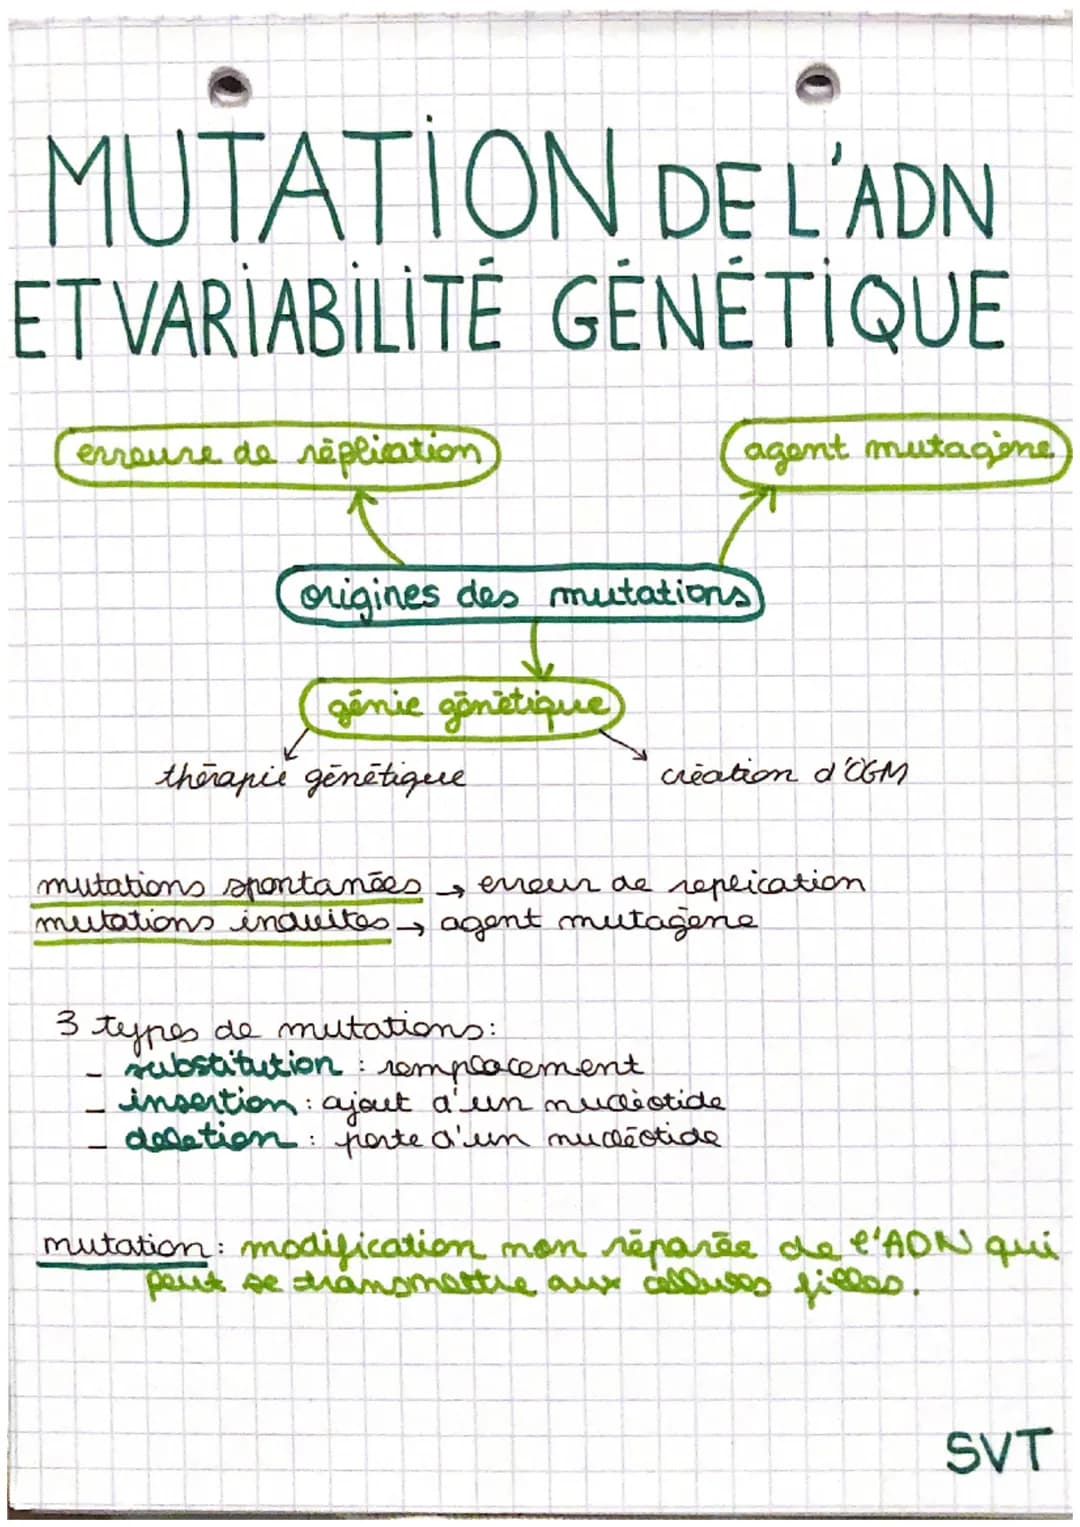 MUTATION DE L'ADN
ET VARIABILITÉ GÉNÉTIQUE
erreure de réplication
agent mutagène
origines des mutations
génie génétique
thérapie génétique
création d'OGM
mutations spontanées → erreur de replication
mutations induites → agent mutagène
3 types de mutations:
- substitution : remplacement
- insertion : ajout d'un nucléotide
- deletion : perte d'un nucléotide
mutation : modification non réparée de l'ADN qui
peut se transmettre aux cellules filles.
SVT